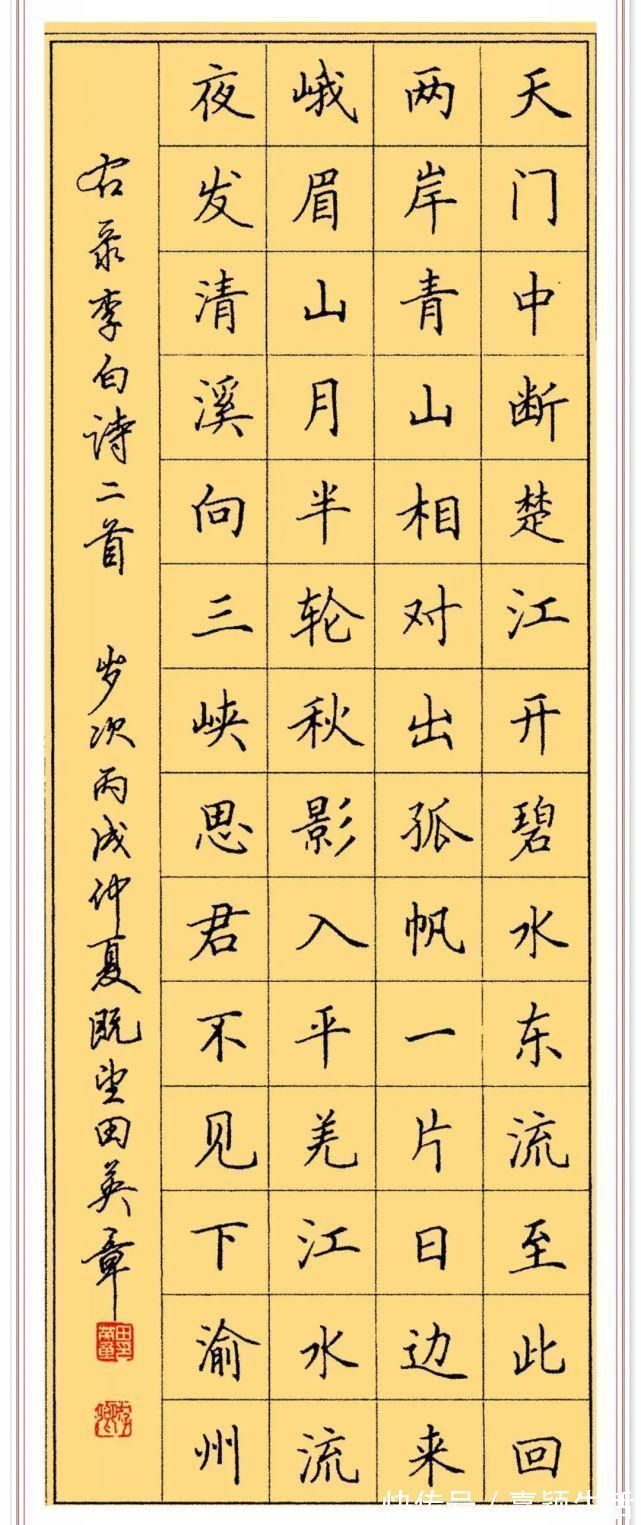 天门中断楚江开碧水东流至此回
两岸青山相对出孤帆一片日边来
峨眉山月半轮秋影入平羌江水流
夜发清溪向三峡思君不见下渝州
右录李白诗二首 岁次丙戌仲夏既望田英章
快传号/嘉颖生活